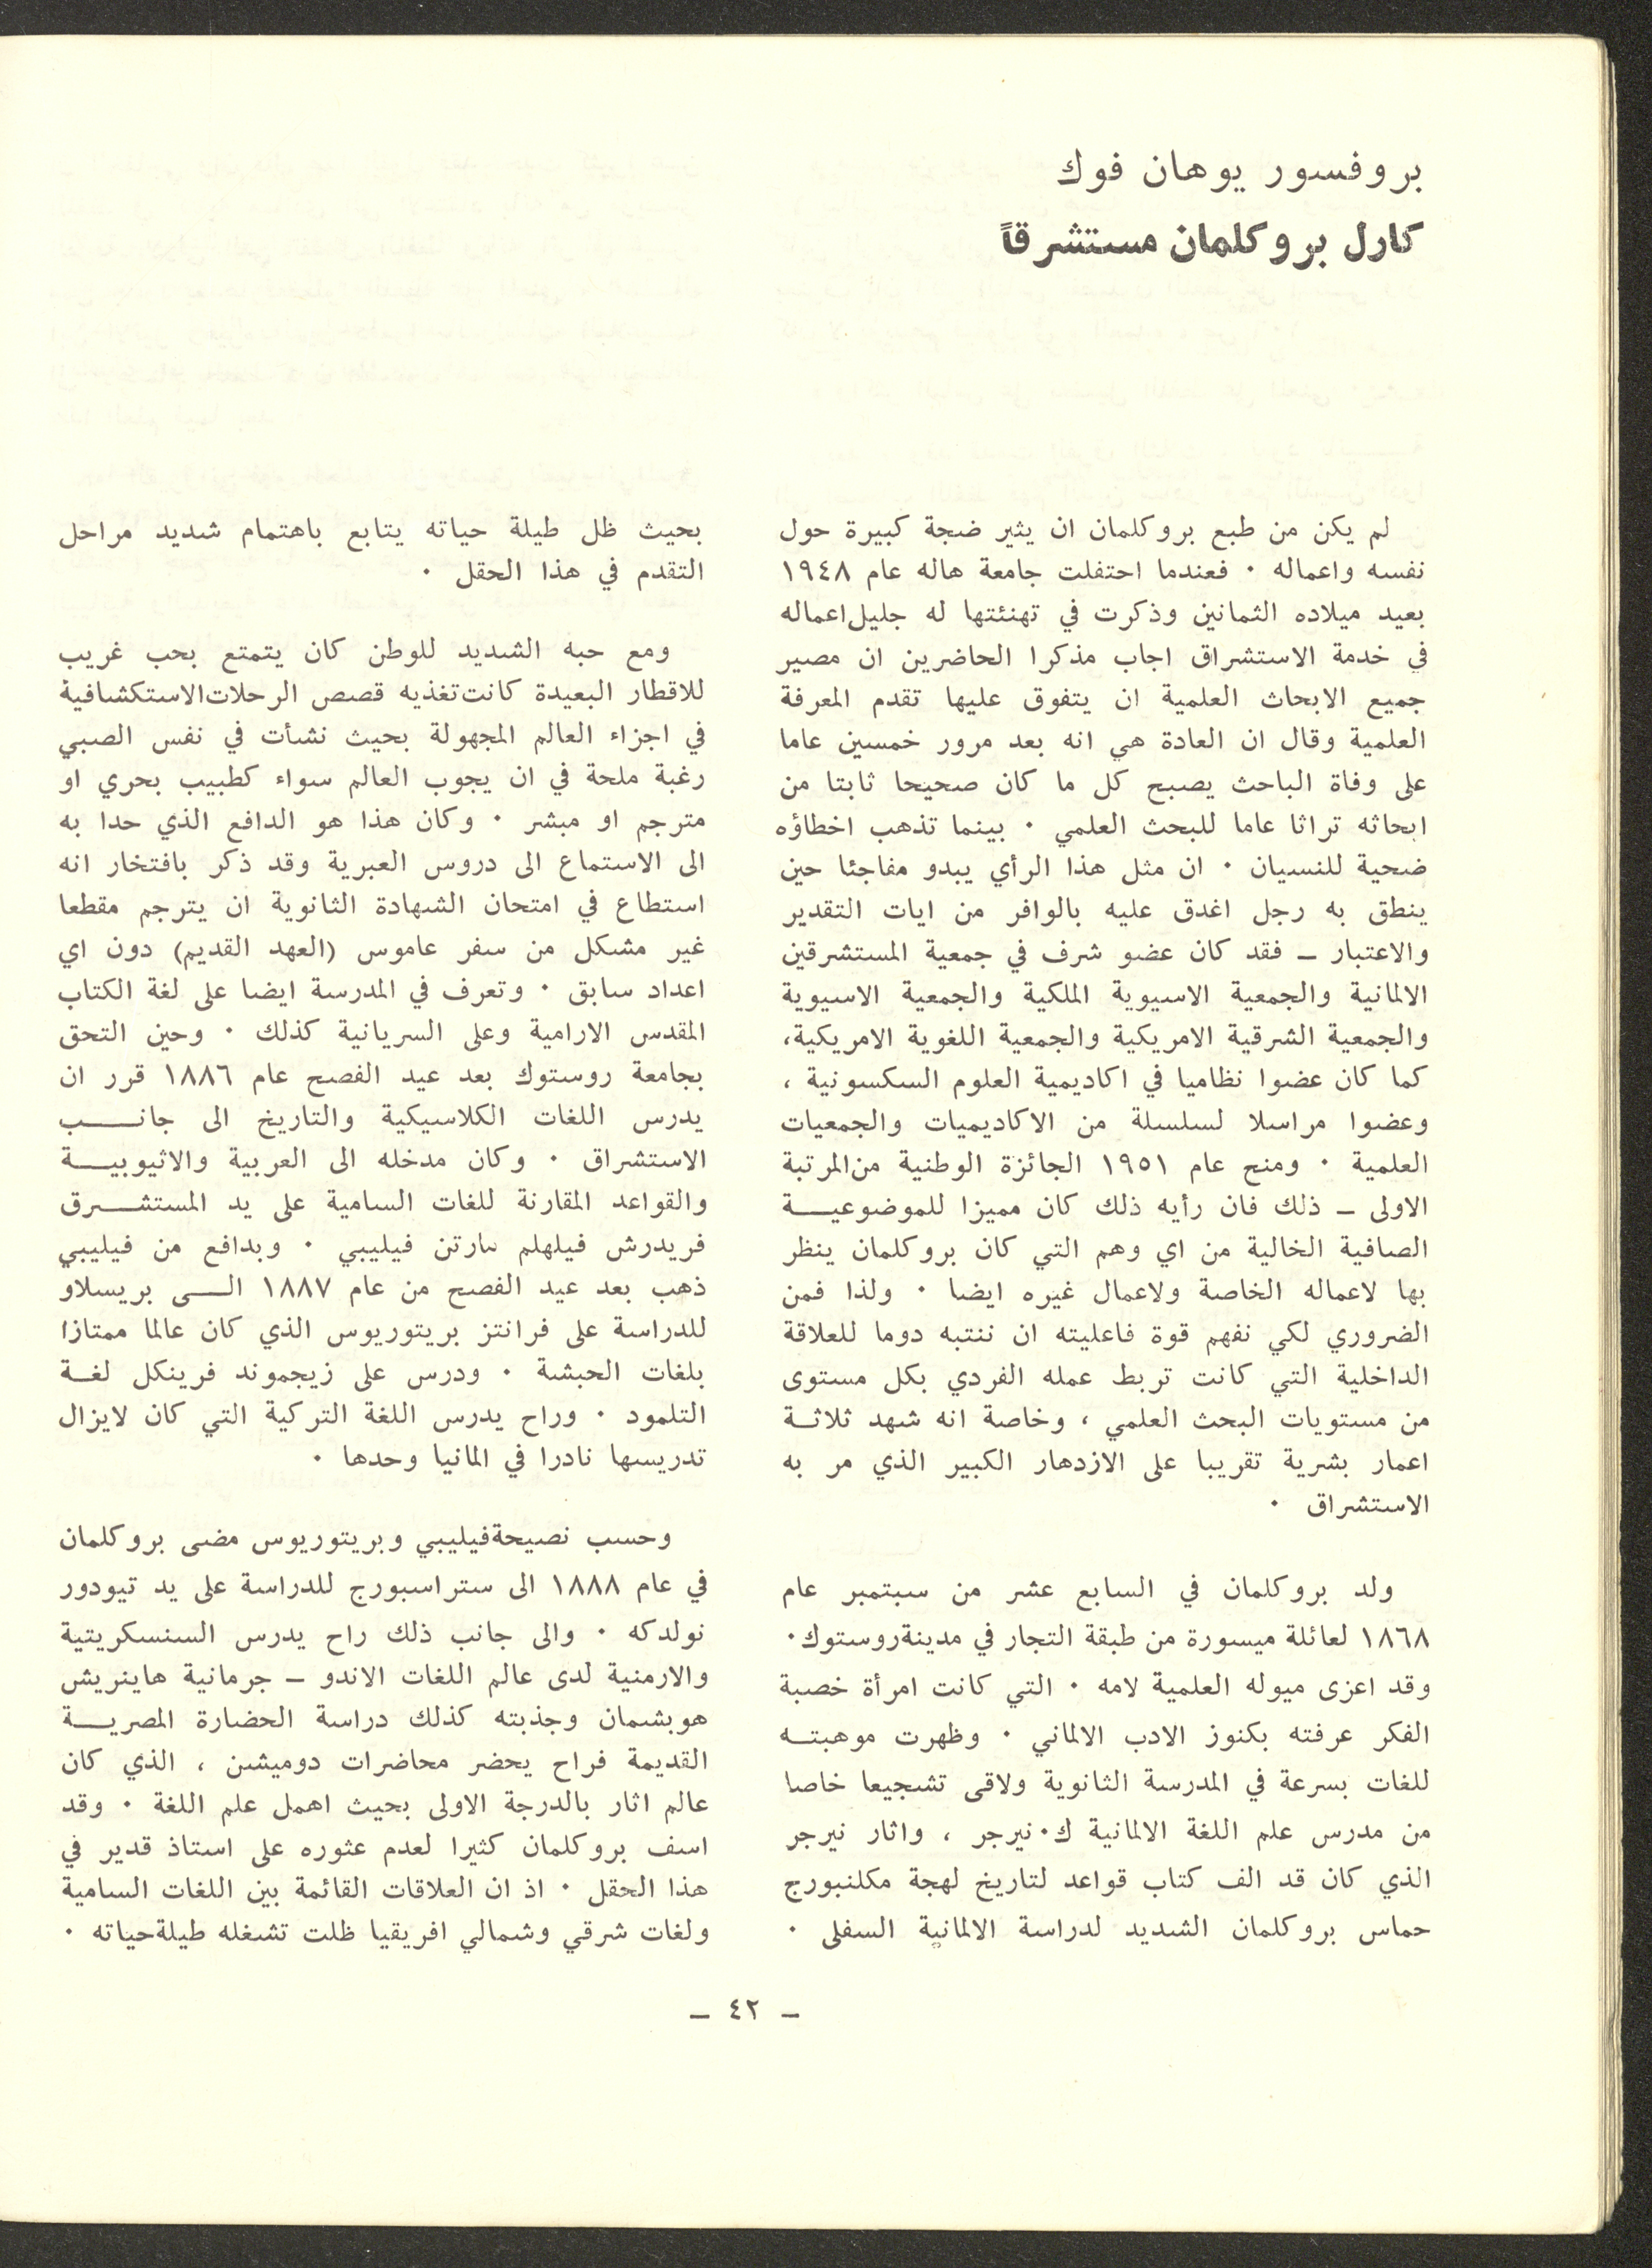 بروفسور يوهان فوك
كارل بروكلمان مستشرقاً
لم يكن من طبع بروكلمان ان يثير ضجة كبيرة حول
نفسه واعماله . فعندما احتفلت جامعة هاله عام ١٩٤٨
بعيد ميلاده الثمانين وذكرت في تهنئتها له جليل اعماله
في خدمة الاستشراق اجاب مذكرا الحاضرين ان مصير
جميع الابحاث العلمية ان يتفوق عليها تقدم المعرفة
العلمية وقال ان العادة هي انه بعد مرور خمسين عاما
على وفاة الباحث يصبح كل ما كان صحيحا ثابتا من
ابحاثه تراثا عاما للبحث العلمي . بينما تذهب اخطاؤه
ضحية للنسيان . ان مثل هذا الرأي يبدو مفاجئا حين
ينطق به رجل اغدق عليه بالوافر من ايات التقدير
والاعتبار ــ فقد كان عضو شرف في جمعية المستشرقين
الالمانية والجمعية الاسيوية الملكية والجمعية الاسيوية
والجمعية الشرقية الامريكية والجمعية اللغوية الامريكية،
كما كان عضوا نظاميا في اكاديمية العلوم السكسونية ،
وعضوا مراسلا لسلسلة من الاكاديميات والجمعيات
العلمية . ومنح عام ١٩٥١ الجائزة الوطنية من المرتبة
الاولى ــ ذلك فان رأيه ذلك كان مميزا للموضوعيـــة
الصافية الخالية من اي وهم التي كان بروكلمان ينظر
بها لاعماله الخاصة ولاعمال غيره ايضا . ولذا فمن
الضروري لكي نفهم قوة فاعليته ان ننتبه دوما للعلاقة
الداخلية التي كانت تربط عمله الفردي بكل مستوى
من مستويات البحث العلمي ، وخاصة انه شهد ثلاثـة
اعمار بشرية تقريبا على الازدهار الكبير الذي مر به
الاستشراق .
ولد بروكلمان في السابع عشر من سبتمبر عام
١٨٦٨ لعائلة ميسورة من طبقة التجار في مدينة روستوك.
وقد اعزى ميوله العلمية لامه . التي كانت امرأة خصبة
الفكر عرفته بكنوز الادب الالماني . وظهرت موهبتـه
للغات بسرعة في المدرسة الثانوية ولاقى تشجيعا خاصا
من مدرس علم اللغة الالمانية ك. نيرجر ، واثار نيرجر
الذي كان قد الف كتاب قواعد لتاريخ لهجة مكلنبورج
حماس بروكلمان الشديد لدراسة الالمانية السفلى .
بحيث ظل طيلة حياته يتابع باهتمام شديد مراحل
التقدم في هذا الحقل .
ومع حبه الشديد للوطن كان يتمتع بحب غريب
للاقطار البعيدة كانت تغذيه قصص الرحلات الاستكشافية
في اجزاء العالم المجهولة بحيث نشأت في نفس الصبي
رغبة ملحة في ان يجوب العالم سواء كطبيب بحري او
مترجم او مبشر . وكان هذا هو الدافع الذي حدا به
الى الاستماع الى دروس العبرية وقد ذكر بافتخار انه
استطاع في امتحان الشهادة الثانوية ان يترجم مقطعا
غير مشكل من سفر عاموس (العهد القديم) دون اي
اعداد سابق . وتعرف في المدرسة ايضا على لغة الكتاب
المقدس الارامية وعلى السريانية كذلك . وحين التحق
بجامعة روستوك بعد عيد الفصح عام ١٨٨٦ قرر ان
يدرس اللغات الكلاسيكية والتاريخ الى جانــــب
الاستشراق . وكان مدخله الى العربية والاثيوبيـــة
والقواعد المقارنة للغات السامية على يد المستشـــرق
فريدرش فيلهلم مارتن فيليبي . وبدافع من فيليبي
ذهب بعد عيد الفصح من عام ١٨٨٧ الـــى بريسلاو
للدراسة على فرانتز بريتوريوس الذي كان عالما ممتازا
بلغات الحبشة . ودرس على زيجموند فرينكل لغـة
التلمود . وراح يدرس اللغة التركية التي كان لايزال
تدريسها نادرا في المانيا وحدها .
وحسب نصيحة فيليبي وبريتوريوس مضى بروكلمان
في عام ١٨٨٨ الى ستراسبورج للدراسة على يد تيودور
نولدكه . والى جانب ذلك راح يدرس السنسكريتية
والارمنية لدى عالم اللغات الاندو ــ جرمانية هاينريش
هوبشمان وجذبته كذلك دراسة الحضارة المصريـــة
القديمة فراح يحضر محاضرات دوميشن ، الذي كان
عالم اثار بالدرجة الاولى بحيث اهمل علم اللغة . وقد
اسف بروكلمان كثيرا لعدم عثوره على استاذ قدير في
هذا الحقل . اذ ان العلاقات القائمة بين اللغات السامية
ولغات شرقي وشمالي افريقيا ظلت تشغله طيلة حياته .
ــ ٤٢ ــ